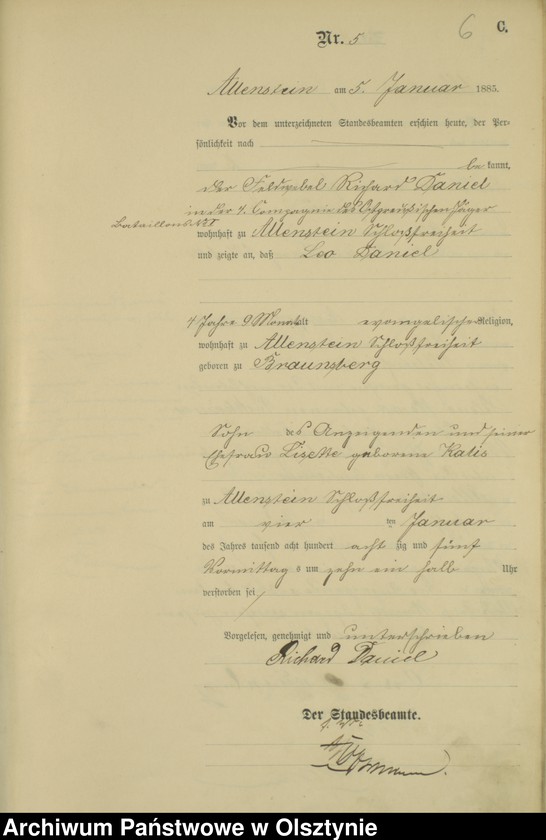 6 C.
Nr. 5
Allenstein am 5. Januar 1885.
Vor dem unterzeichneten Standesbeamten erschien heute, der Per-
sönlichkeit nach
be kannt,
der Feldwebel Richard Daniel
in der 4. Compagnie des Ostpreußischen Jäger
Bataillons
wohnhaft zu Allenstein Schloßfreiheit
und zeigte an, daß Leo Daniel
4 Jahre 9 Monat alt evangelischer Religion,
wohnhaft zu Allenstein Schloßfreiheit
geboren zu Braunsberg
Sohn des Anzeigenden und seiner
Ehefrau Lisette geborene Kalis
zu Allenstein Schloßfreiheit
am vier ten Januar
des Jahres tausend acht hundert acht zig und fünf
Vormittag s um zehn ein halb Uhr
verstorben sei
Vorgelesen, genehmigt und unterschrieben
Richard Daniel
Der Standesbeamte.
Archiwum Państwowe w Olsztynie